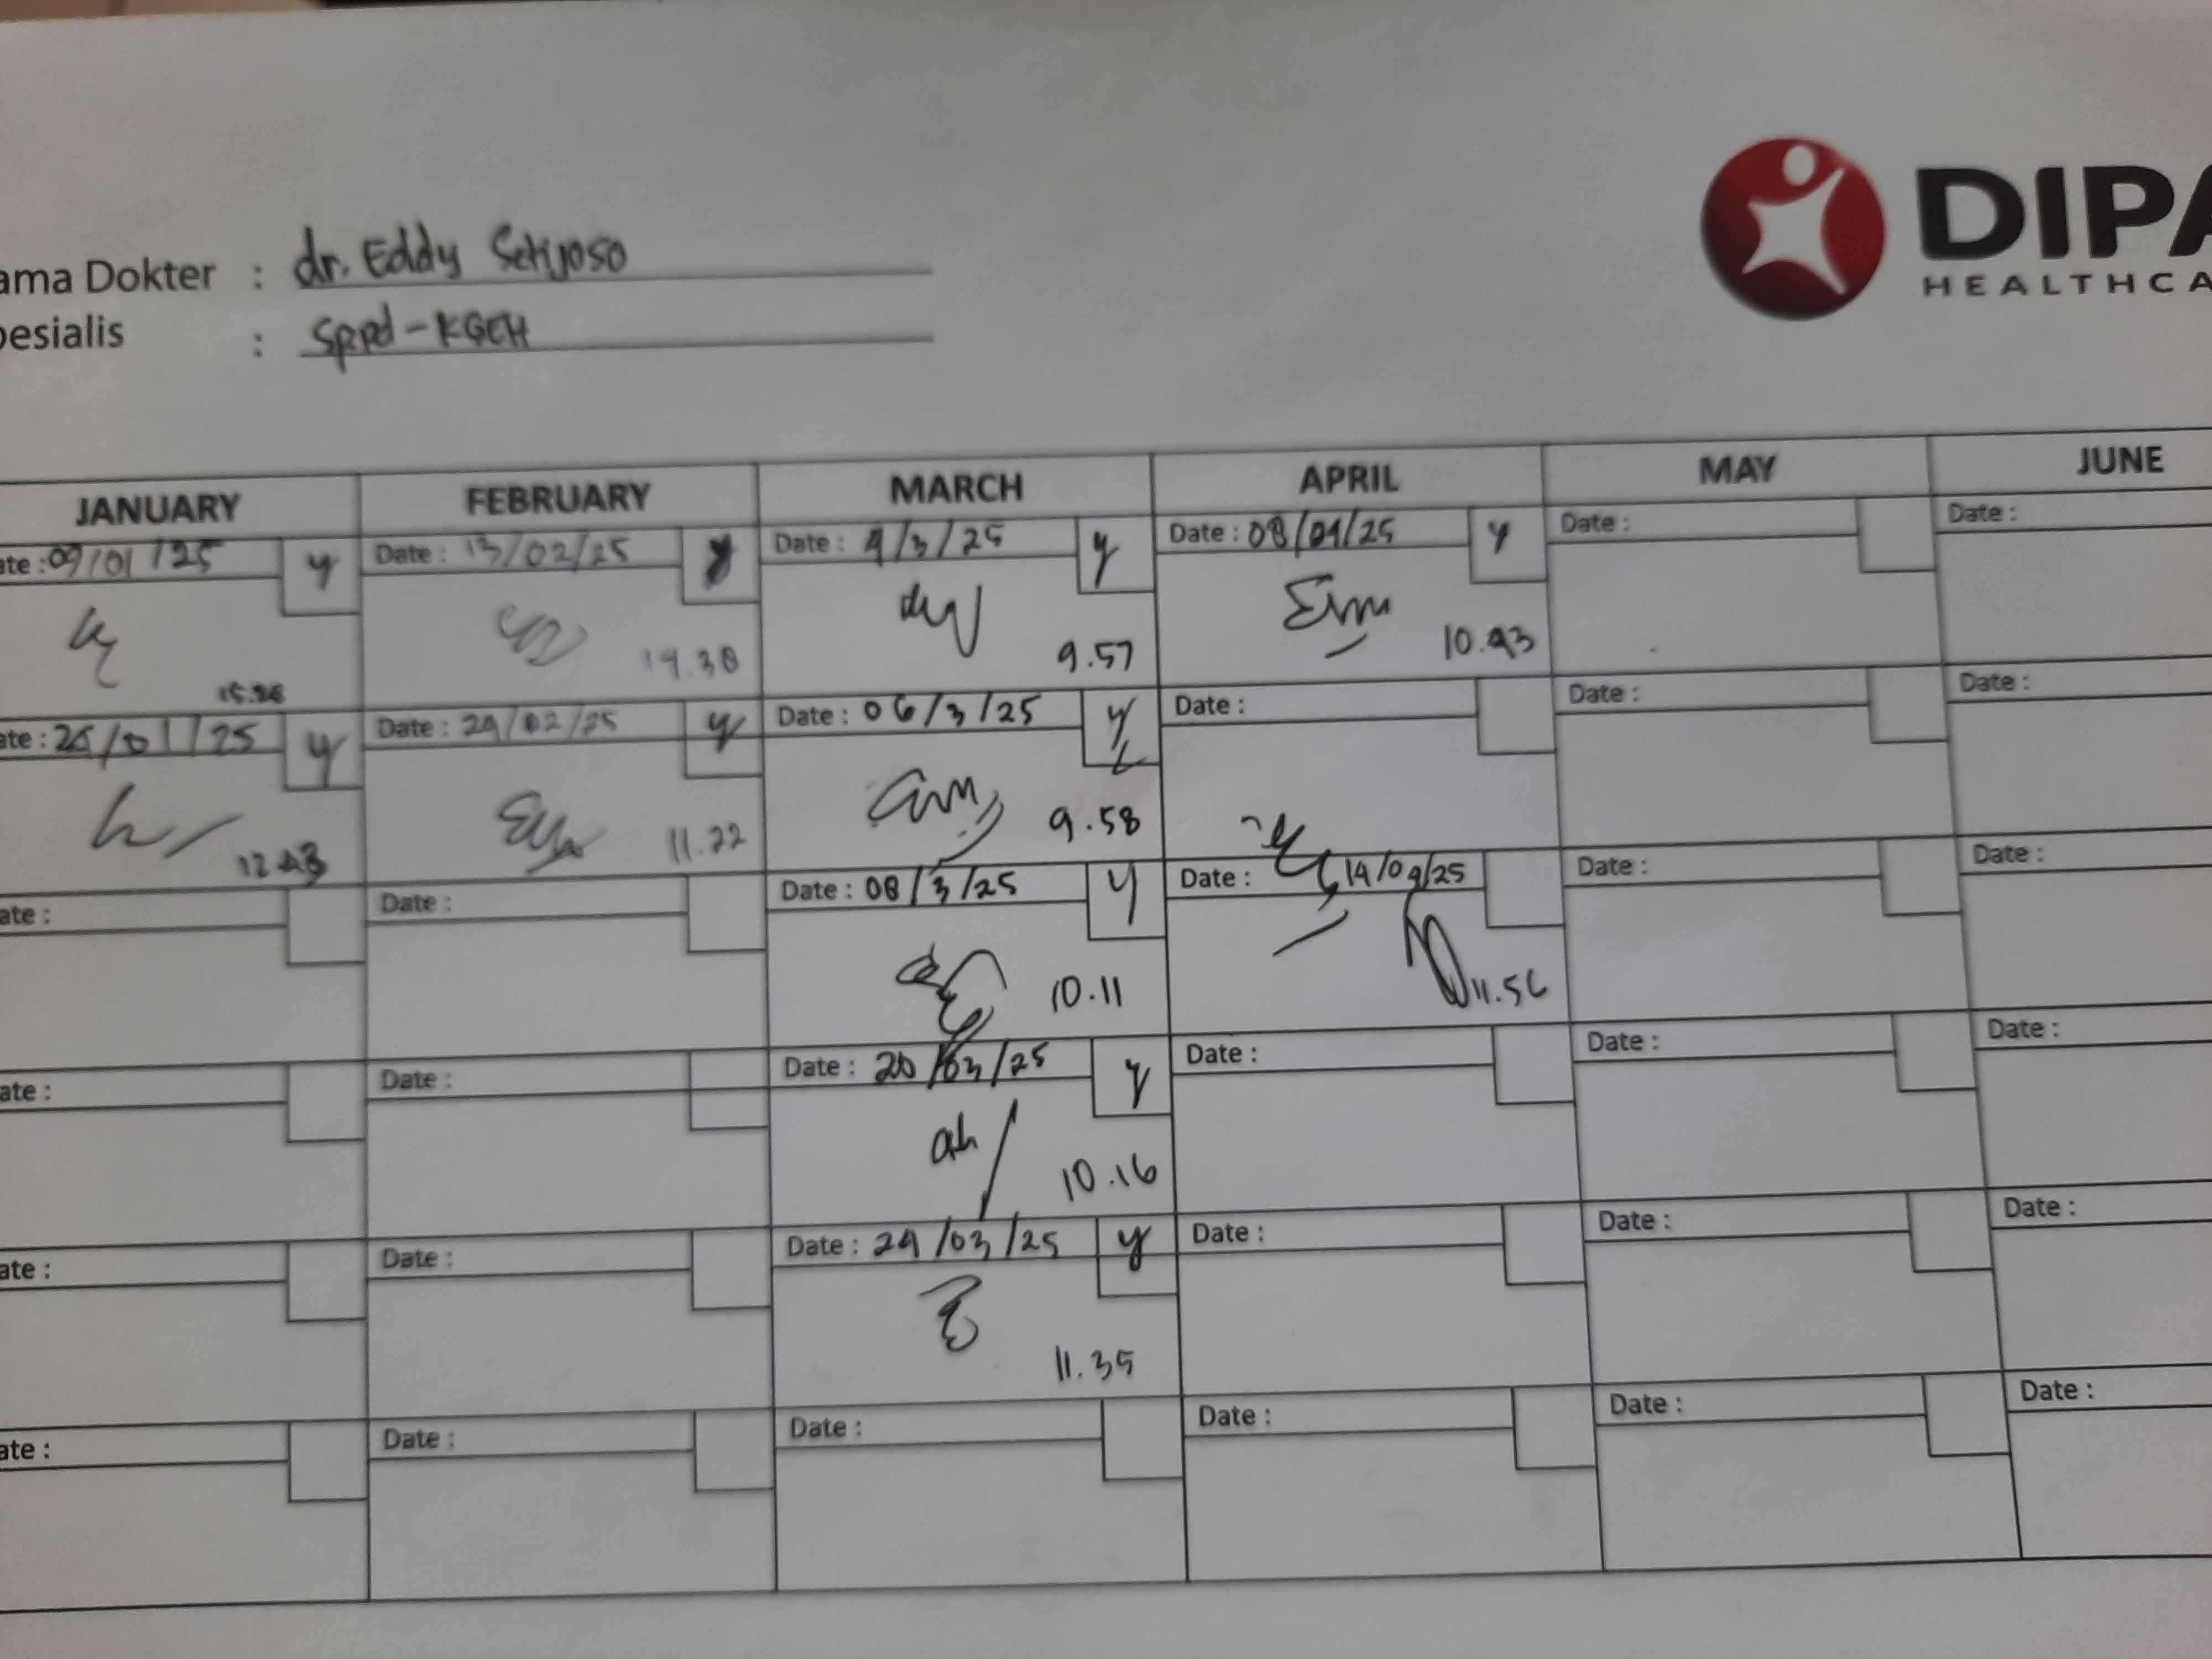 DIPA
HEALTHCA
ama Dokter : dr. Eddy Setijoso
pesialis : Sppd-KGEH
JANUARY FEBRUARY MARCH APRIL MAY JUNE
ate : 09/01/25 y Date : 13/02/25 y Date : 4/3/25 y Date : 08/04/25 y Date : Date :
19.30 9.57 10.43
ate : 25/01/25 y Date : 24/02/25 y Date : 06/3/25 y Date : Date : Date :
12.43 11.22 9.58
ate : Date : Date : 08/3/25 y Date : 14/04/25 Date : Date :
10.11 11.56
ate : Date : Date : 20/03/25 y Date : Date : Date :
10.16
ate : Date : Date : 24/03/25 y Date : Date : Date :
11.35
ate : Date : Date : Date : Date : Date :